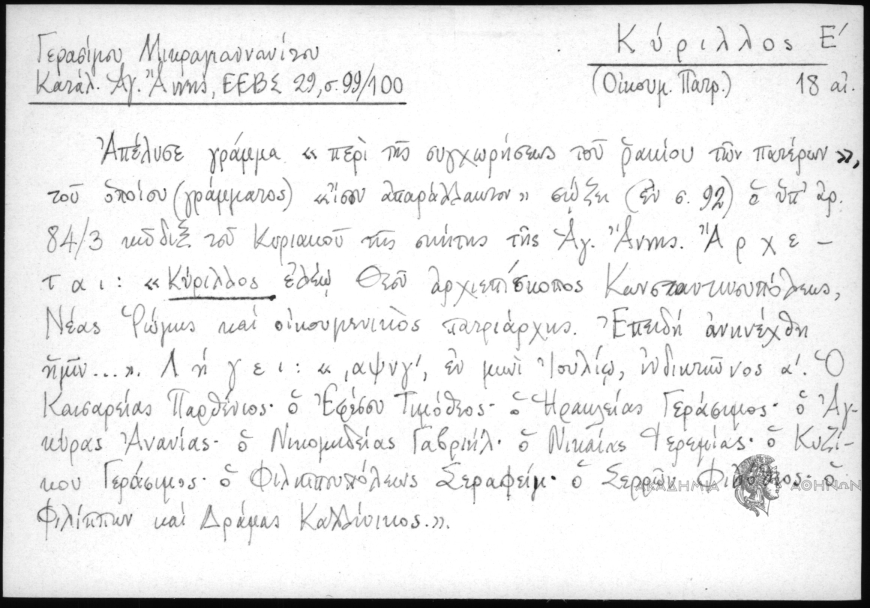 Γερασίμου Μικραγιαννανίτου
Κατάλ. Ἁγ. Ἄννης, ΕΕΒΣ 29, σ. 99/100
Κύριλλος Ε΄
(Οἰκουμ. Πατρ.) 18 αἰ.
Ἀπέλυσε γράμμα « περὶ τῆς συγχωρήσεως τοῦ ῥακίου τῶν πατέρων »,
τοῦ ὁποίου (γράμματος) «ἴσον ἀπαράλλακτον» σῴζει (ἐν σ. 92) ὁ ὑπ' ἀρ.
84/3 κῶδιξ τοῦ Κυριακοῦ τῆς σκήτης τῆς Ἁγ. Ἄννης. Ἄρχε-
ται: «Κύριλλος ἐλέῳ Θεοῦ ἀρχιεπίσκοπος Κωνσταντινουπόλεως,
Νέας Ῥώμης καὶ οἰκουμενικὸς πατριάρχης. Ἐπειδὴ ἀνηνέχθη
ἡμῖν...». Λήγει: « ͵αψνγ΄, ἐν μηνὶ Ἰουλίῳ, ἰνδικτιῶνος α΄. Ὁ
Καισαρείας Παρθένιος· ὁ Ἐφέσου Τιμόθεος· ὁ Ἡρακλείας Γεράσιμος· ὁ Ἀγ-
κύρας Ἀνανίας· ὁ Νικομηδείας Γαβριήλ· ὁ Νικαίας Ἱερεμίας· ὁ Κυζί-
κου Γεράσιμος· ὁ Φιλιππουπόλεως Σεραφείμ· ὁ Σερρῶν Φιλόθεος· ὁ
Φιλίππων καὶ Δράμας Καλλίνικος.».
ΑΚΑΔΗΜΙΑ ΑΘΗΝΩΝ